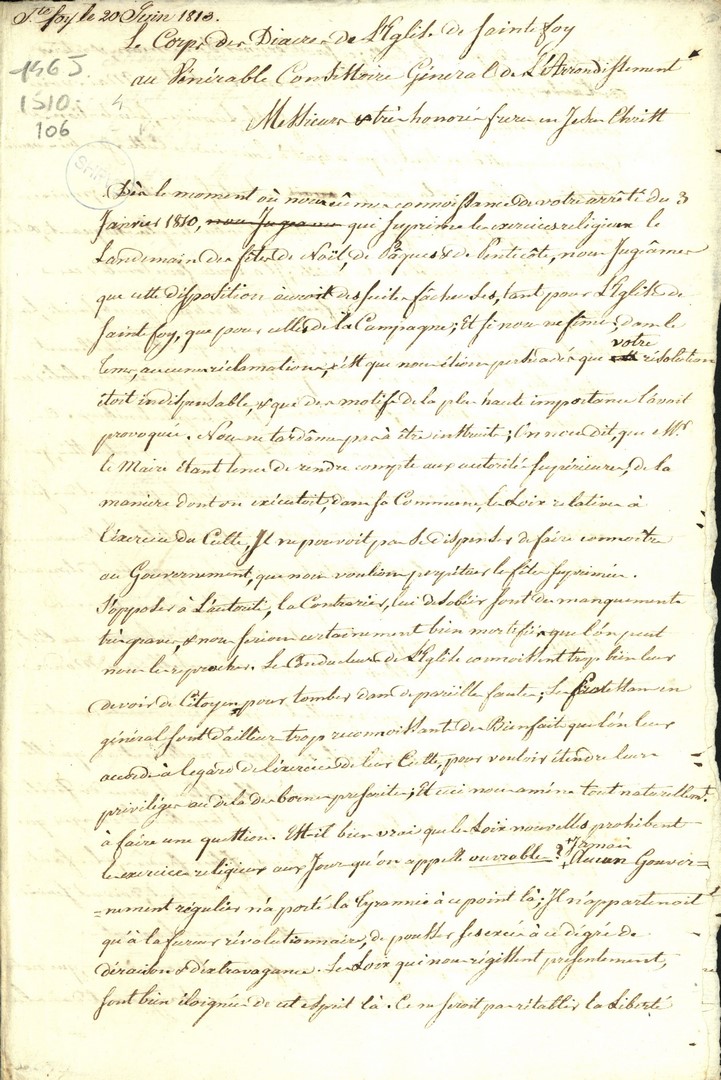 Ste foy le 20 Juin 1813.
Le Corps des Diacres de L'Eglise de Sainte foy
au Vénérable Consistoire Général de L'Arrondissement
1565
1510
4
106
Messieurs & très honorés freres en Jesus Christ
SHPF
Dès le moment où nous eûmes connoissance de votre arrêté du 3
Janvier 1810, nous Jugeames qui suprime les exercices religieux le
Landemain des fêtes de Noël, de Pâques & de Pentecôte, nous Jugeâmes
que cette disposition auroit des suites fâcheuses, tant pour L'Eglise de
Sainte foy, que pour celles de la Campagne; Et si nous ne fimes, dans le
votre
tems, aucunes réclamations, c'est que nous étions persuadés que résolution
étoit indispensable, & que des motifs de la plus haute importance l'avoit
provoquée. Nous ne tardâmes pas à être instruits; l'on nous dit, que Mr.
le Maire étant tenu de rendre compte aux autorités supérieures, de la
maniere dont on exécutoit, dans sa Commune, les Loix relatives à
l'exercice du Culte, Il ne pouvoit pas se dispenser de faire connoitre
au Gouvernement, que nous voulions perpétuer les fêtes suprimées.
S'opposer à L'autorité, la Contrarier, lui désobéir sont des manquements
très graves, & nous serions certainement bien mortifiés que l'on peut
nous les reprocher. Les Conducteurs de L'Eglise connoissent trop bien leurs
devoirs de Citoyens, pour tomber dans de pareilles fautes; Les Protestans en
général sont d'ailleurs trop reconnoissants des Bienfaits que l'on leur
accorde à l'égard de l'exercice de leur Culte, pour vouloir étendre leurs
privilèges au delà des bornes prescrites; Et ceci nous amène tout naturellemt.
à faire une question. Est-il bien vrai que les Loix nouvelles prohibent
les exercices religieux aux Jours qu'on appelle ouvrables? Jamais
Aucun Gouver=
=nement régulier n'a porté la tyrannie à ce point là; Il n'appartenoit
qu'à la fureur révolutionnaire, de pousser ses excès à ce dégré de
déraison & d'extravagance. Les Loix qui nous régissent présentement,
sont bien éloignées de cet esprit là. Ce ne seroit pas rétablir la Liberté